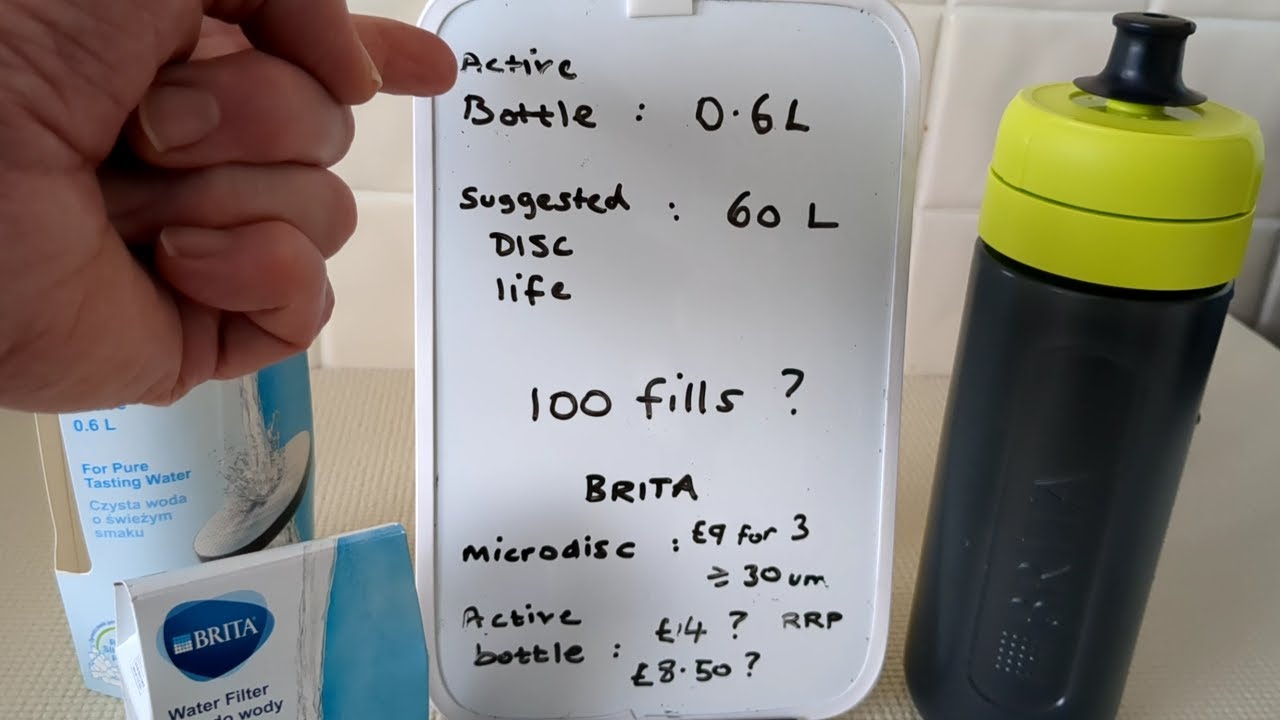 Active
Bottle : 0.6 L
Suggested : 60 L
DISC
life
100 fills ?
BRITA
Microdisc : £9 for 3
≥ 30 um
Active
bottle : £14 ? RRP
£8.50 ?
0.6 L
For Pure
Tasting Water
Czysta woda
o świeżym
smaku
BRITA
Water Filter
do wody
BRITA